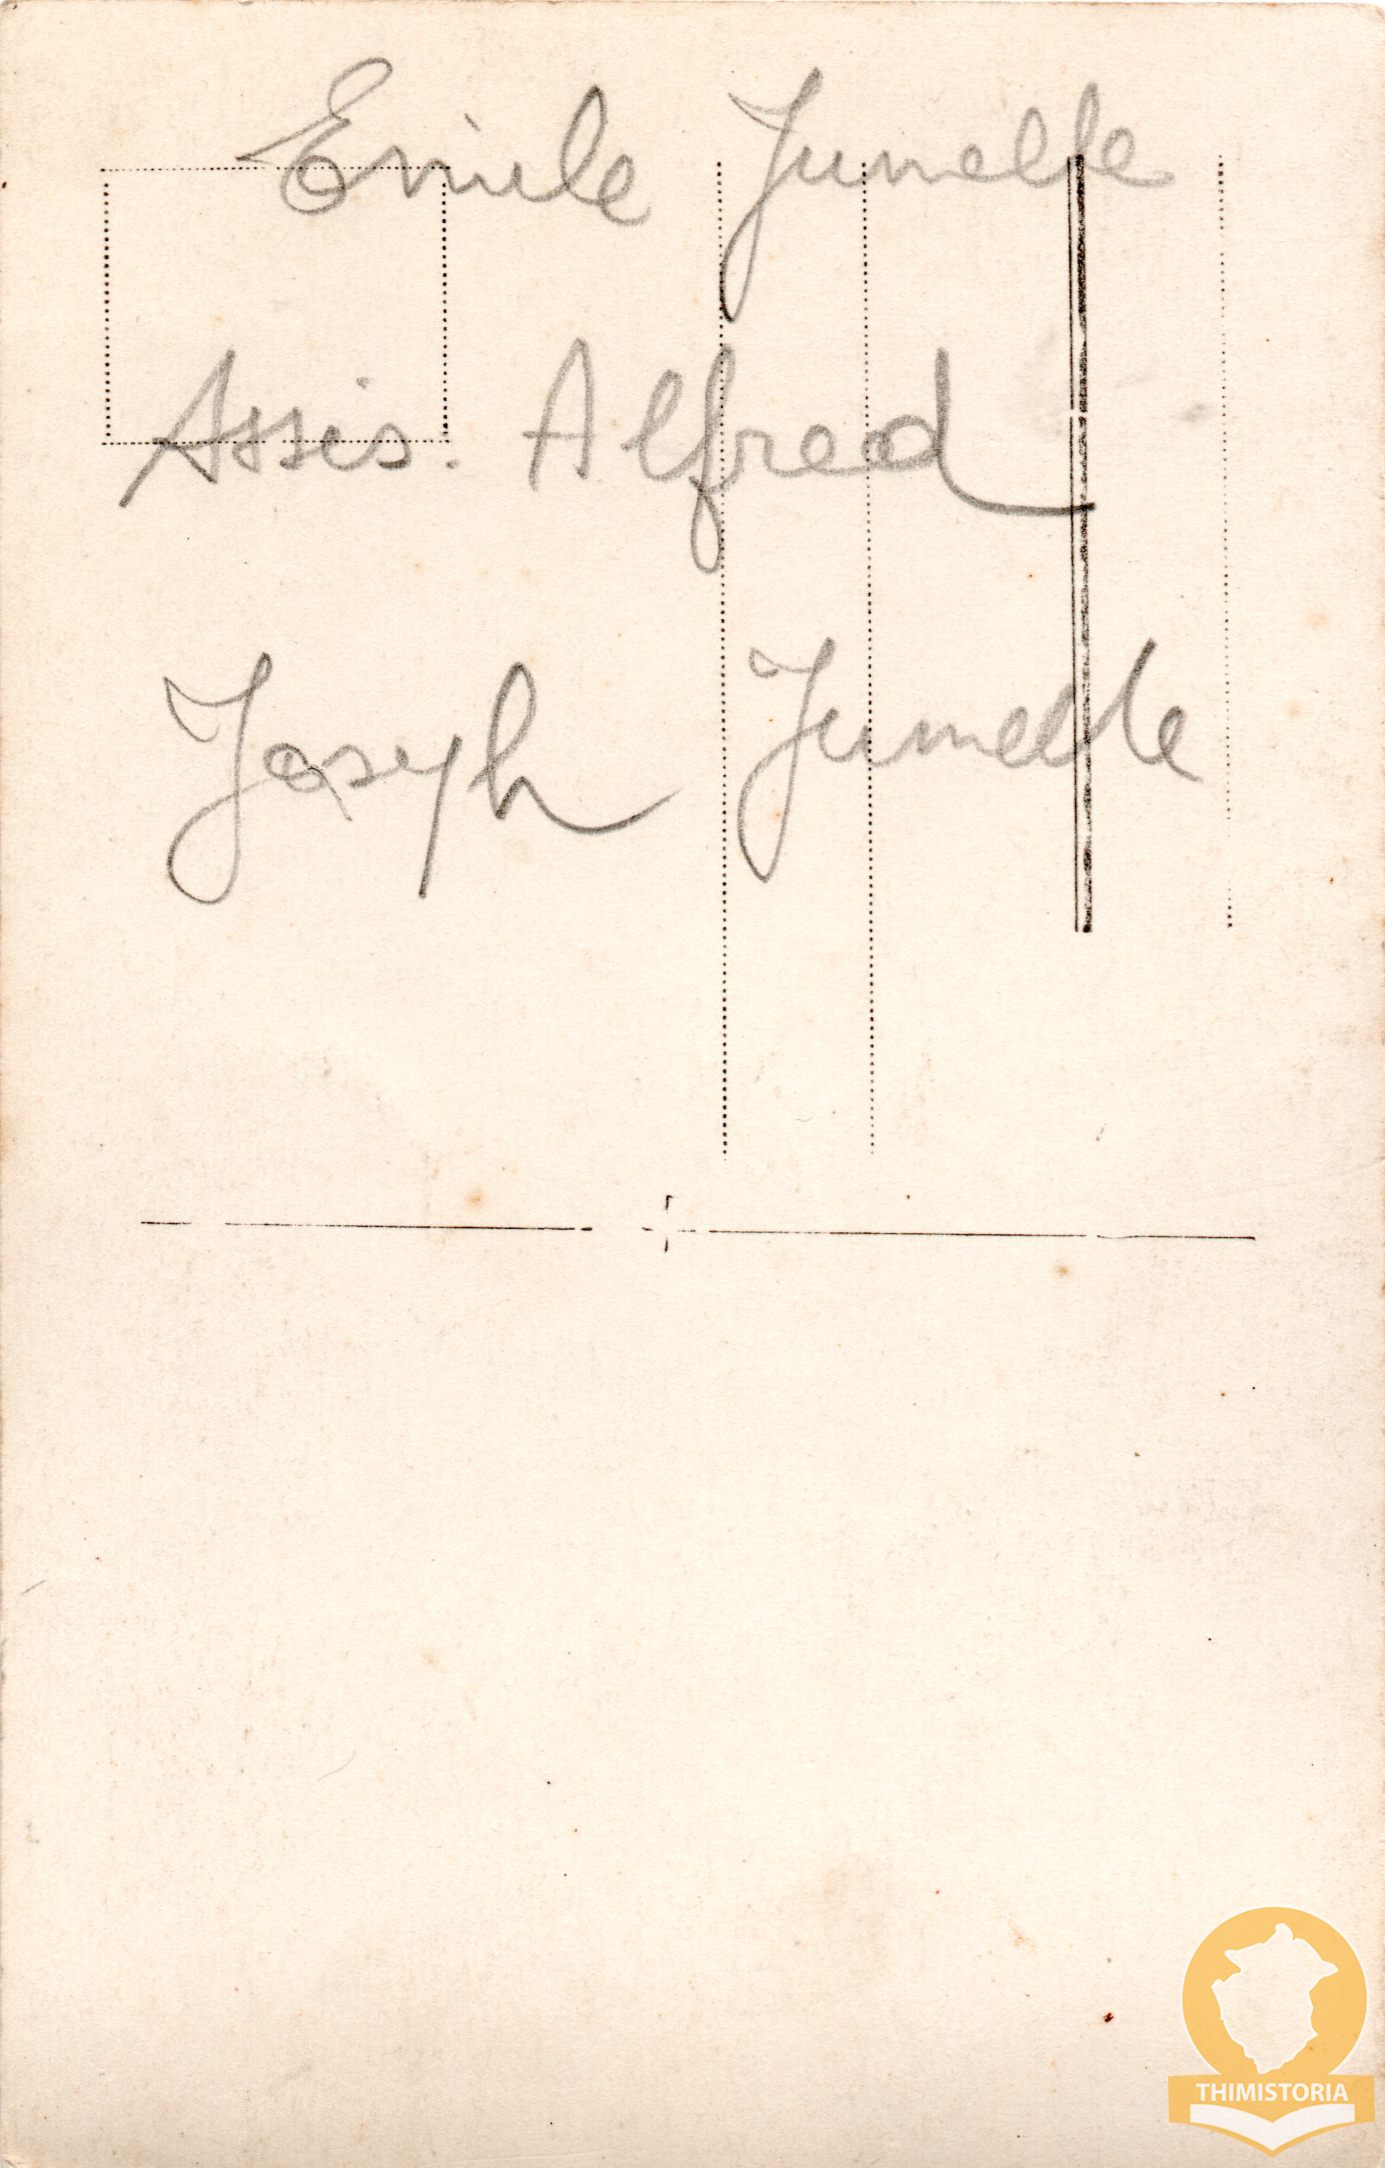 Emile Jumelle
Assis. Alfred
Joseph Jumelle
THIMISTORIA